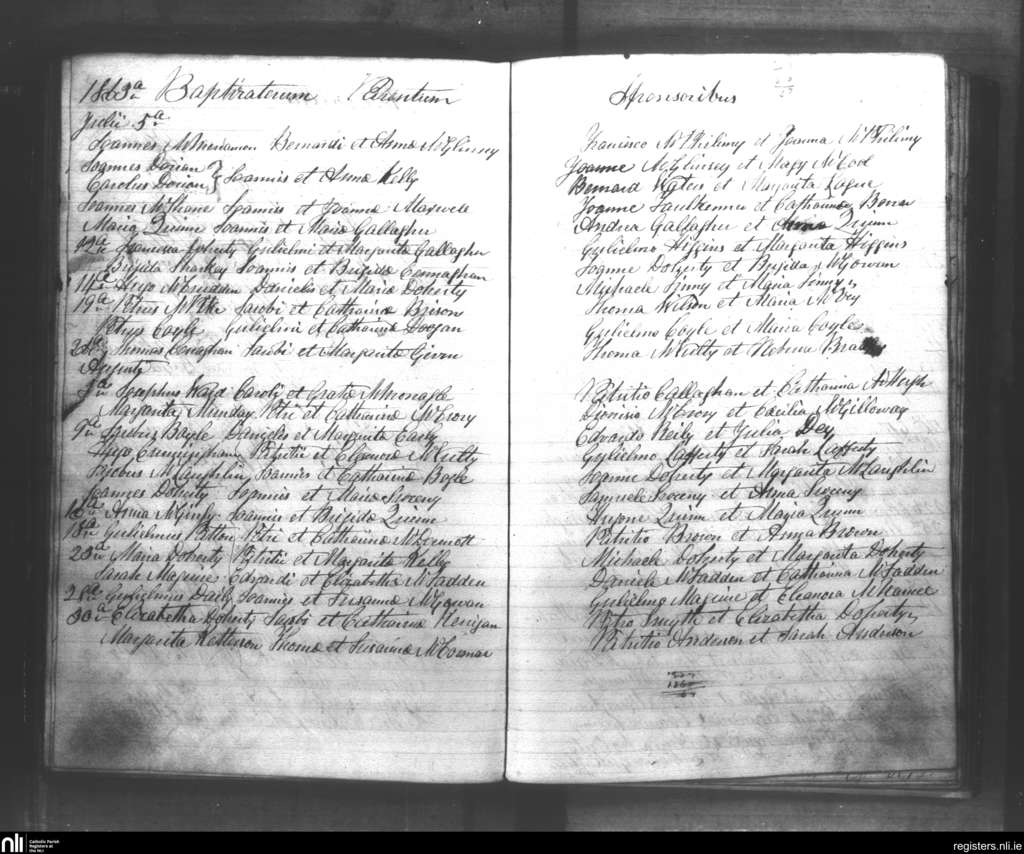 1863 a Baptizatorum Parentum Sponsoribus
Julii 5 a
Joannes McMenamon Bernardi et Anna McGlinny Francisco McPhilimy et Joanna McPhilimy
Joannes Dorian Joanne McGlinsey et Mary McCool
Carolus Dorian } Joannis et Anna Kelly Bernard Waters et Margarita Lague
Joannes McShane Joannis et Joanna Maxwell Joanne Faulkener et Catharina
Maria Quinn Joannis et Maria Gallagher Andrea Gallagher et Anna Quinn
12 a Francisca Doherty Gulielmi et Margarita Gallagher Gulielmo Higgins et Margarita Higgins
Brigida Sharkey Joannis et Brigida Cannaghan Joanne Doherty et Brigida McGowan
14 a Hugo McCrudden Danielis et Maria Doherty Michaele Finny et Maria Finny
19 a Petrus Jacobi et Catharina Brisons Thoma Wilson et Maria McVey
Petrus Coyle Gulielmi et Catharina Doogan Gulielmo Coyle et Maria Coyle
Thomas Jacobi et Margarita Given Thoma McNulty et
Augusti
Josephus Ward Caroli et Grata McMonagle Patritio Callaghan et Catharina McHugh
Margarita Munday Petri et Catharina McCrory Dionisio McCrory et Cecilia McGilloway
9 a Boyle Danielis et Margarita Early Edvardo Reily et Julia Dey
Hugo Cunningham Patritii et Eleanora McNulty Gulielmo Lafferty et Sarah Lafferty
Jacobus McLaughlin Joannis et Catharina Boyle Joanne Doherty et Margarita McLaughlin
Joannes Doherty Joannis et Maria Sweeny Samuele Sweeny et Anna Sweeny
Anna McGinty Joannis et Brigida Quinn Hugone Quinn et Maria Quinn
18 a Gulielmus Patton Petri et Catharina McDermott Patritio Brown et Anna Brown
23 a Maria Doherty Patritii et Margarita Kelly Michaele Doherty et Margarita Doherty
Sarah Maguire Edvardi et Elizabetha McFadden Daniele McFadden et Catharina McFadden
Gulielmus Daily Joannis et Susanna McGowan Gulielmo Maguire et Eleanora
30 a Elizabetha Doherty Jacobi et Catharina Kerrigan Petro Smyth et Elizabetha Doherty
Margarita Thoma et Susanna Patritio Anderson et Sarah Anderson
nli Catholic Parish
Registers at
the NLI
registers.nli.ie